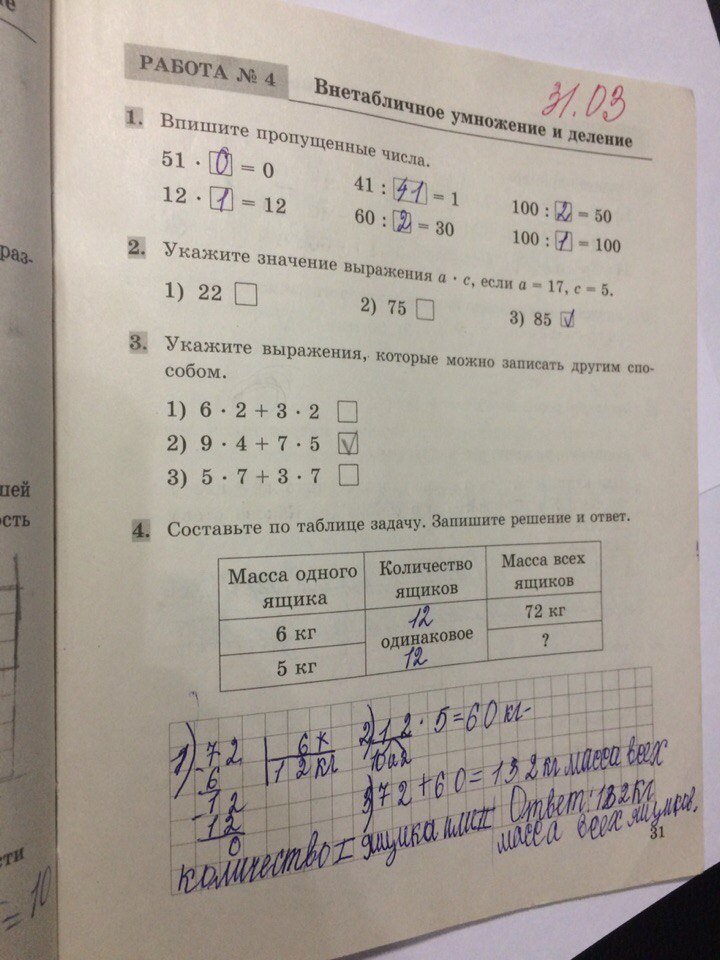 РАБОТА № 4
31.03
Внетабличное умножение и деление
1. Впишите пропущенные числа.
51 · 0 = 0
41 : 41 = 1
100 : 2 = 50
12 · 1 = 12
60 : 2 = 30
100 : 1 = 100
2. Укажите значение выражения a · c, если a = 17, c = 5.
1) 22
2) 75
3) 85 V
3. Укажите выражения, которые можно записать другим спо-
собом.
1) 6 · 2 + 3 · 2
2) 9 · 4 + 7 · 5 V
3) 5 · 7 + 3 · 7
4. Составьте по таблице задачу. Запишите решение и ответ.
Масса одного ящика
Количество ящиков
Масса всех ящиков
6 кг
12
одинаковое
12
72 кг
5 кг
?
1) 72
6 к
- 6
12 кг
- 12
12
0
2) 12 · 5 = 60 кг
3) 72 + 60 = 132 кг масса всех
Ответ: 132 кг
масса всех ящиков.
количество I ящика или II
31
раз-
шей
ость
сти
= 10